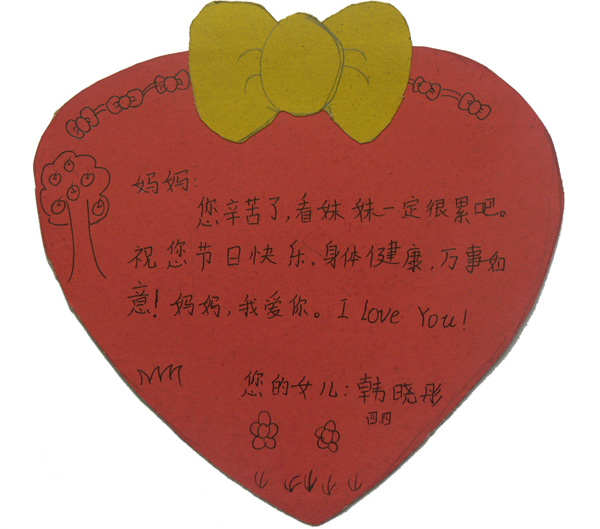 妈妈:
您辛苦了,看妹妹一定很累吧。
祝您节日快乐,身体健康,万事如
意!妈妈,我爱你。I Love You!
您的女儿:韩晓彤
四.四